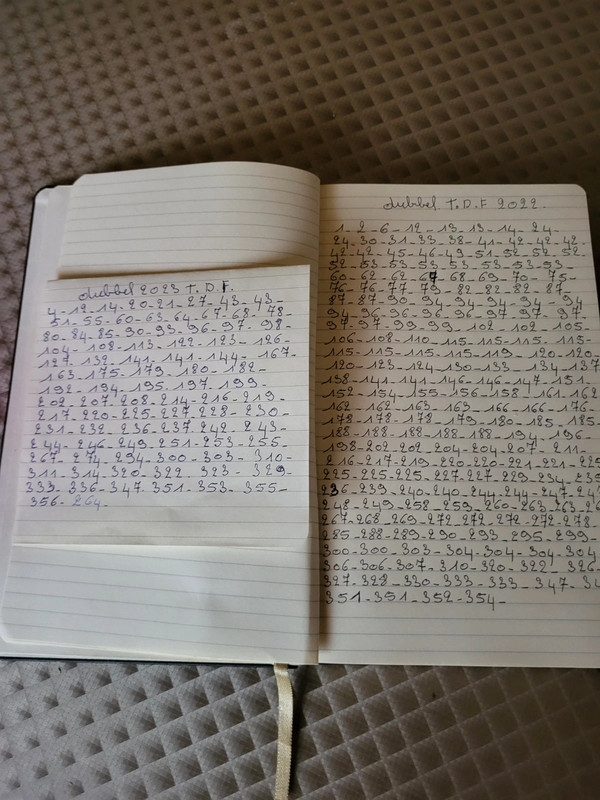 dubbel 2023 T.D.F.
4-12-14-20-21-27-43-43-
51-55-60-63-64-67-68-78
80-84-85-90-93-96-97-98-
104-108-113-122-123-126-
127-132-141-141-144-167-
163-175-179-180-182-
192-194-195-197-199-
202-207-208-214-216-219-
217-220-225-227-228-230-
231-232-236-237-242-243-
244-246-249-251-253-255-
267-274-294-300-303-310-
311-314-320-322-323-329-
333-336-347-351-353-355-
356-264-
dubbel T.D.F 2022.
1-2-6-12-13-13-14-24-
24-30-31-33-38-41-42-42-42-
42-42-45-46-49-51-52-52-52-
52-53-53-53-53-53-53-53-
60-62-62-67-68-69-70-75-
76-76-77-79-82-82-82-87-
87-87-90-94-94-94-94-94
94-96-96-96-96-97-97-97-
97-97-99-99-102-102-105-
106-108-110-115-115-115-115-
115-115-115-115-119-120-120-
120-123-124-130-133-134-137
138-141-141-146-146-147-151-
152-154-155-156-158-161-162
162-162-163-163-166-166-176-
178-178-178-179-180-185-185-
188-188-188-188-188-194-196-
198-202-202-204-204-207-211-
216-217-219-220-220-221-221-225
225-225-225-227-227-229-234-235
236-239-240-240-244-244-247-247
248-249-258-259-260-263-263-26
267-268-269-272-272-272-272-278-
285-288-289-290-293-295-299-
300-300-303-304-304-304-304
306-306-307-310-320-322-326-
327-328-330-333-333-347-34
351-351-352-354-